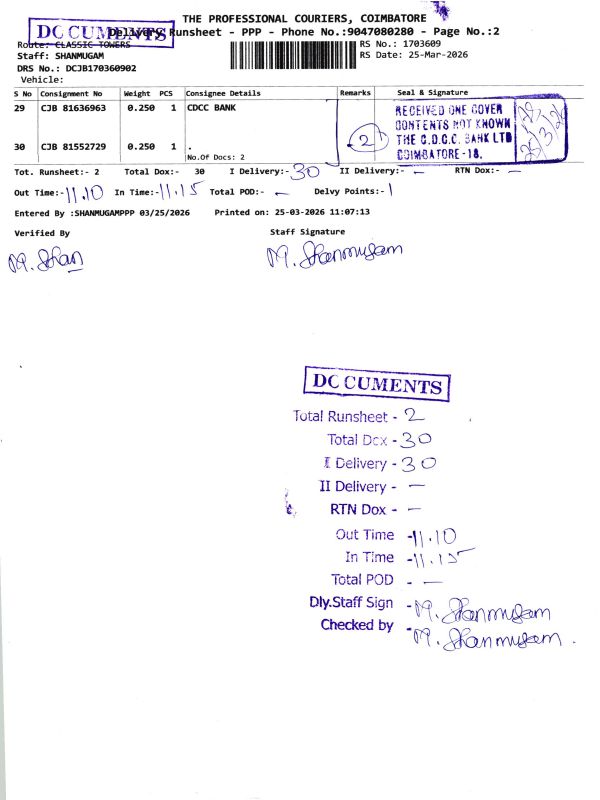 THE PROFESSIONAL COURIERS, COIMBATORE
DOCUMENTS
Delivery Runsheet - PPP - Phone No.:9047080280 - Page No.:2
Route: CLASSIC TOWERS
RS No.: 1703609
Staff: SHANMUGAM
RS Date: 25-Mar-2026
DRS No.: DCJB170360902
Vehicle:
S No Consignment No Weight PCS Consignee Details Remarks Seal & Signature
29 CJB 81636963 0.250 1 CDCC BANK
RECEIVED ONE COVER
CONTENTS NOT KNOWN
THE C.D.C.C. BANK LTD
COIMBATORE-18.
2
30 CJB 81552729 0.250 1 .
No.Of Docs: 2
Tot. Runsheet:- 2 Total Dox:- 30 I Delivery:- 30 II Delivery:- – RTN Dox:- –
Out Time:- 11.10 In Time:- 11.15 Total POD:- – Delvy Points:- 1
Entered By :SHANMUGAMPPP 03/25/2026 Printed on: 25-03-2026 11:07:13
Verified By Staff Signature
M. Shan M. Shanmugam
DOCUMENTS
Total Runsheet - 2
Total Dox - 30
I Delivery - 30
II Delivery - –
RTN Dox - –
Out Time - 11.10
In Time - 11.15
Total POD - –
Dly.Staff Sign - M. Shanmugam
Checked by - M. Shanmugam.